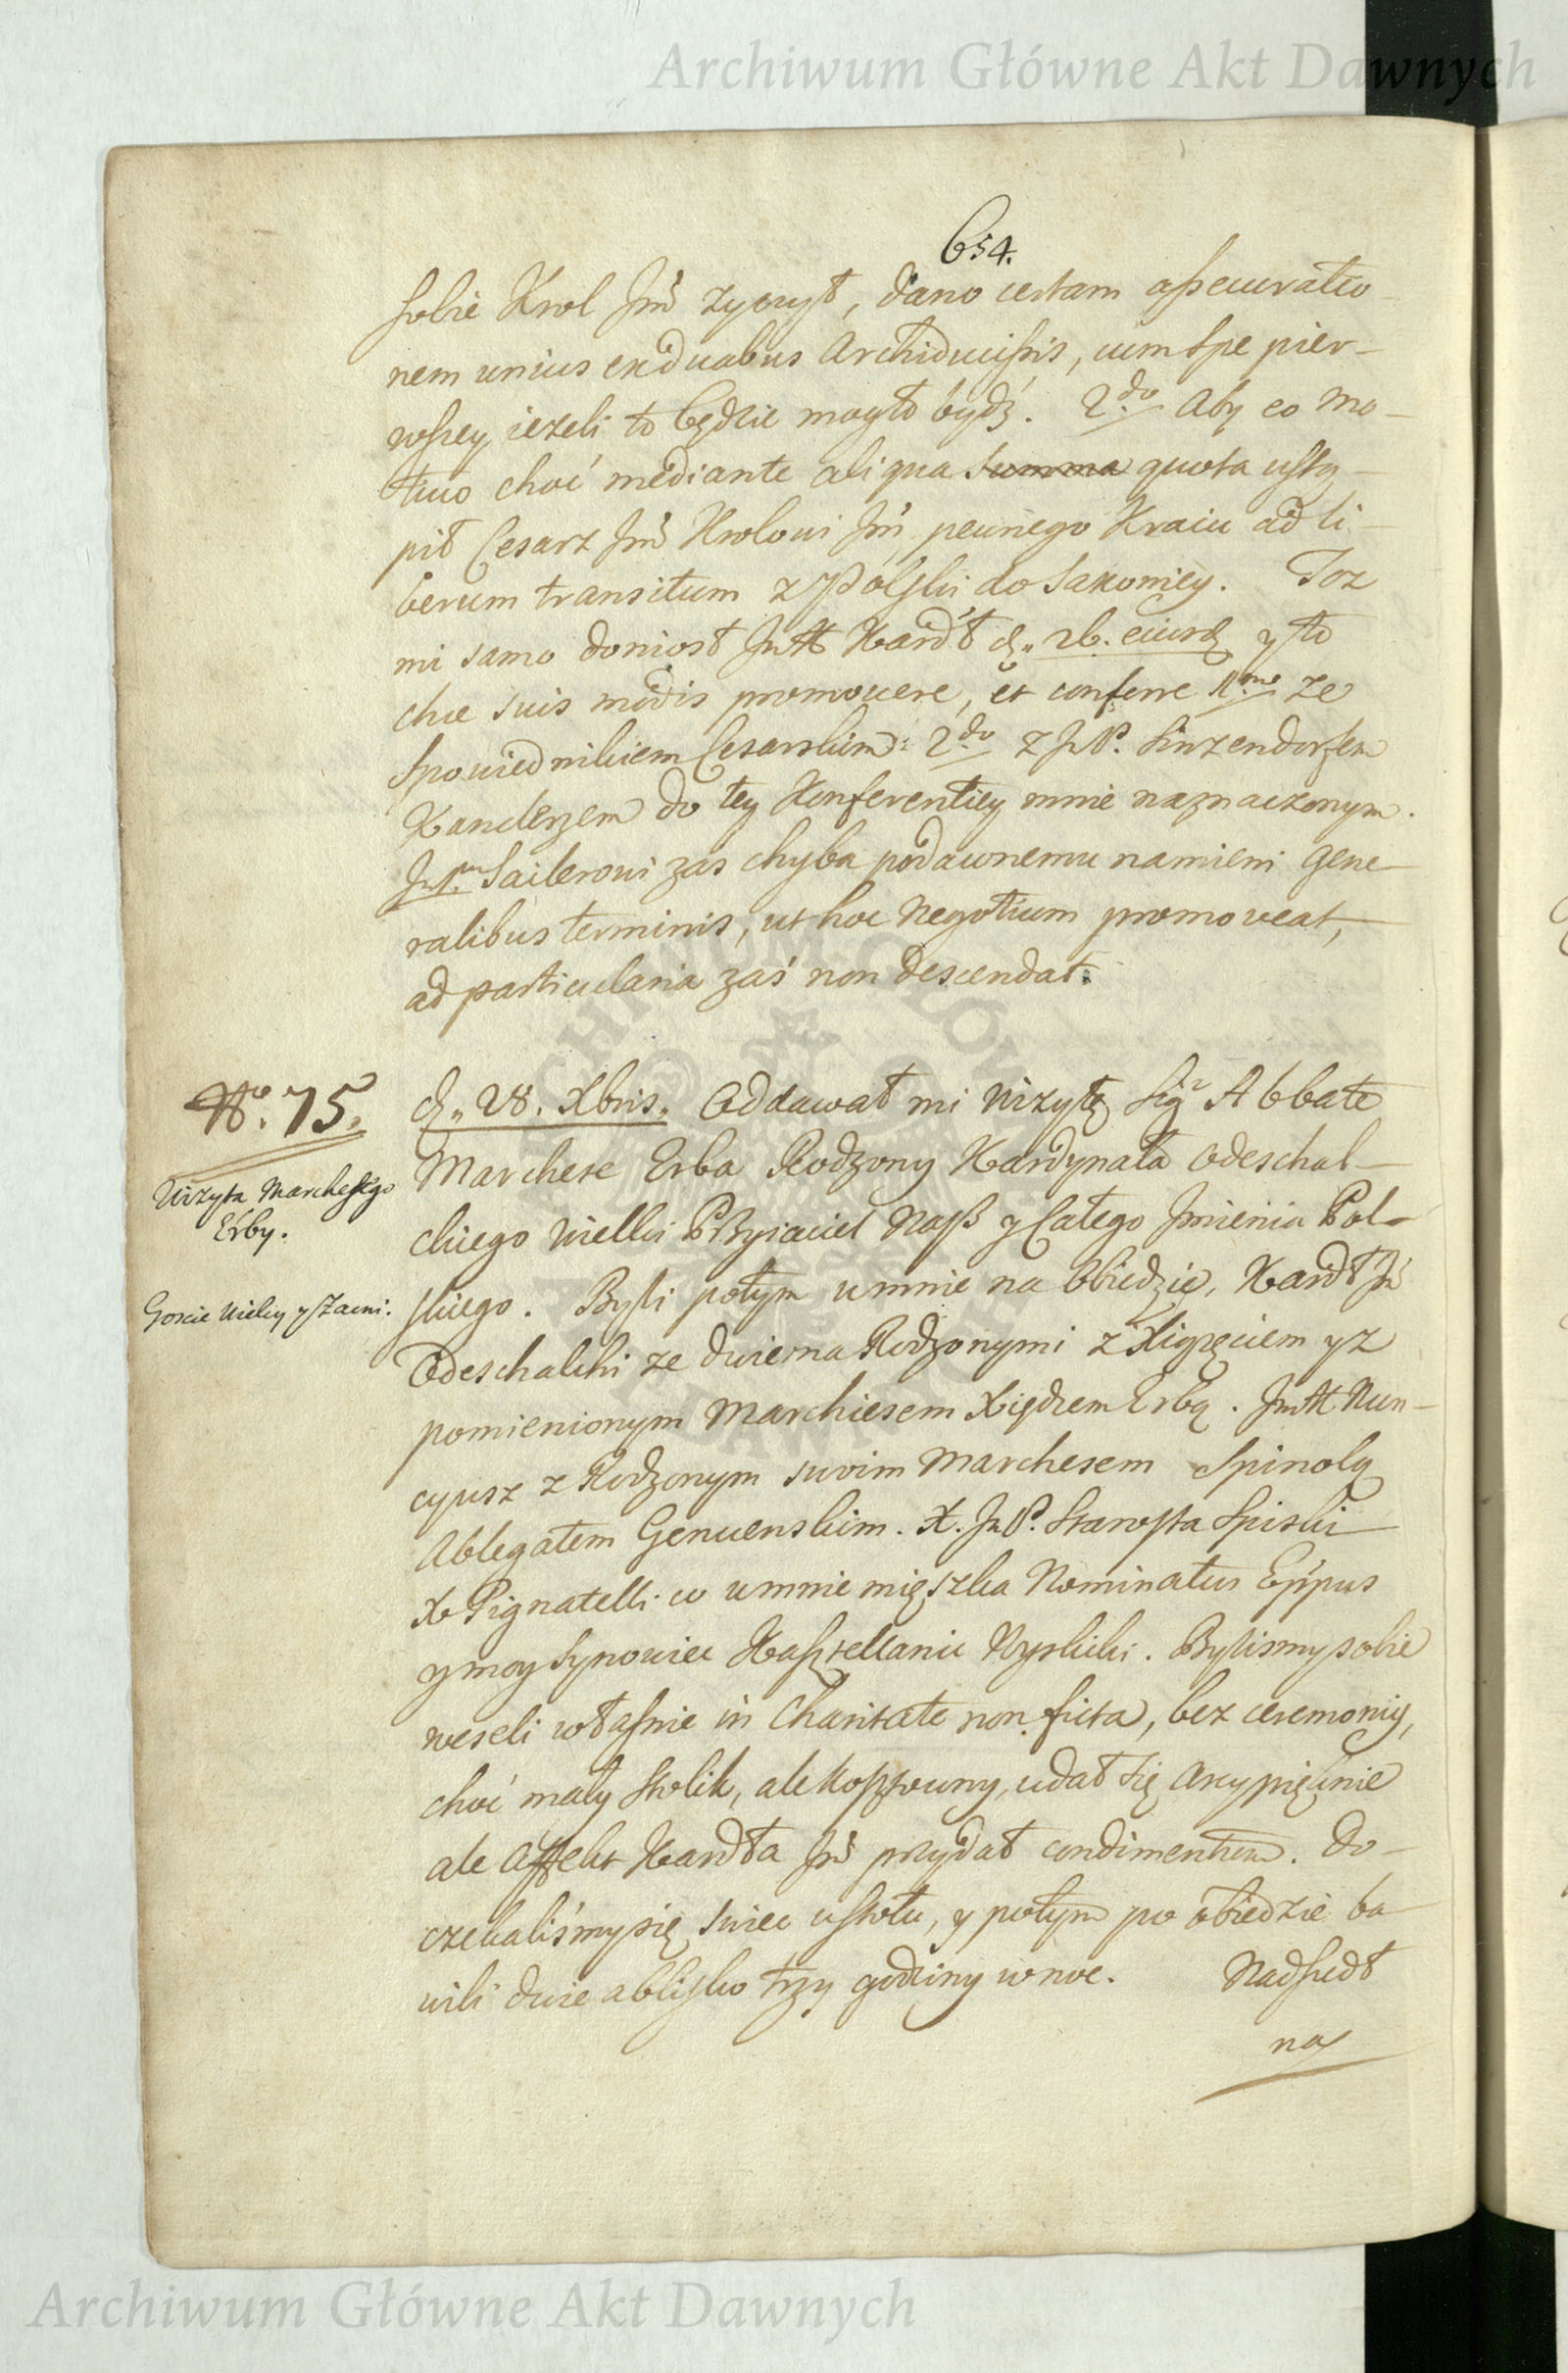 Archiwum Główne Akt Dawnych
654.
sobie Krol Jmć zyczył, dano certam assecuratio-
nem unius ex duabus Archiducissis, cum spe pier-
wszey iezeli to będzie mogło bydź. 2do Aby eo mo-
tivo choć mediante aliqua summa quota ustą-
pił Cesarz Jmć Krolowi Jmć pewnego Kraiu ad li-
berum transitum z Polski do Saxoniey. Toz
mi samo doniosł JmX Kardł d. 26. eiusd y to
chce suis modis promovere, et conferre 1mo ze
Spowiednikiem Cesarskim: 2do z JnP. Sinzendorfem
Kanclerzem do tey Konferentiey mnie naznaczonym.
JnPu Sailerowi zas chyba podawnemu namieni gene-
ralibus terminis, ut hoc negotium promoveat,
ad particularia zaś non descendat.
No. 75.
d. 28. Xbris. Oddawał mi wizytę Sigr Abbate
Marchese Erba Rodzony Kardynała Odeschal-
chiego wielki Przyiaciel nasz y Całego Jmienia Pol-
skiego. Byli potym u mnie na Obiedzie, Kardł Jć
Odeschalchi ze dwiema Rodzonymi z Xiążęciem y z
pomienionym Marchiesem Xiędzem Erbą. JmX Nun-
cyusz z Rodzonym swoim Marchesem Spinolą
Ablegatem Genuenskim. X. JnP. Starosta Spiski
X Pignatelli co u mnie mięszka Nominatus Eppus
y moy Synowiec Kasztellanic Ryski. Bylismy sobie
weseli własnie in Charitate non ficta, bez ceremoniy,
choć mały stolik, ale kosztowny, udał się arcypięknie
ale affekt Kardła Jmć przydał condimentum. Do-
czekaliśmy się swiec u stołu, y potym po obiedzie ba-
wili dwie ablisko trzy godziny w noc. Nadszedł
na
Wizyta Marchesego
Erby.
Goscie wielcy y Zacni.
Archiwum Główne Akt Dawnych